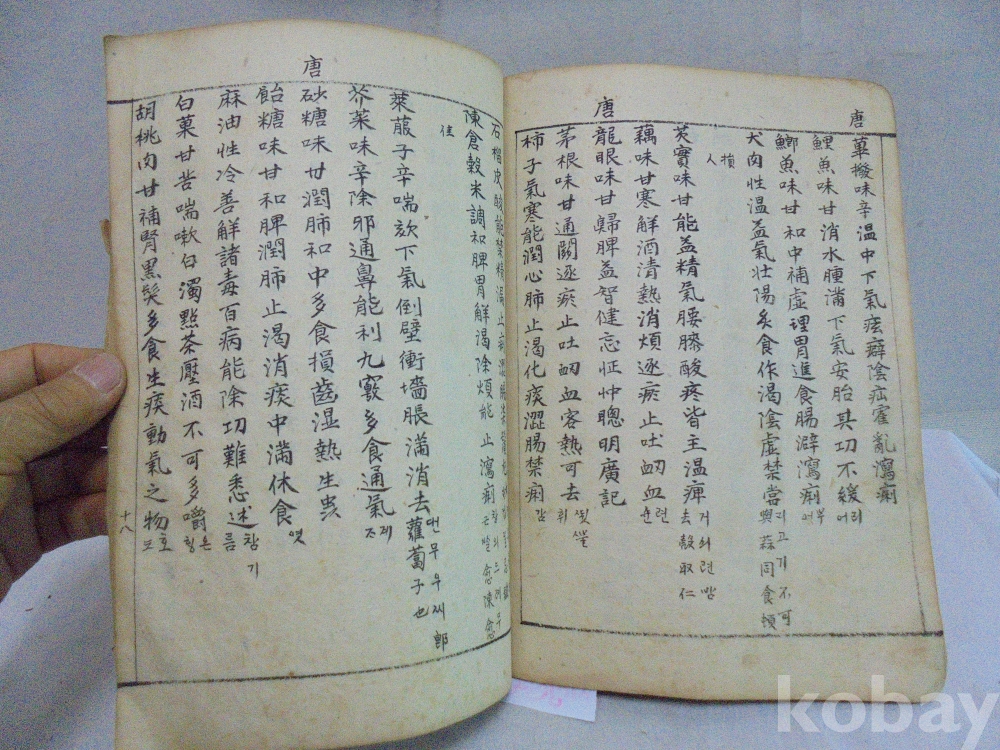 唐
蓽撥味辛溫中下氣痃癖陰疝霍亂瀉痢
鯉魚味甘消水腫滿下氣安胎其功不緩 리어
鯽魚味甘和中補虛理胃進食腸澼瀉痢 부어
犬肉性溫益氣壯陽炙食作渴陰虛禁嘗 고기不可 與蒜同食頓
損人
唐
芡實味甘能益精氣腰膝酸疼皆主溫痺 거싀련밤 去殼取仁
藕味甘寒解酒清熱消煩逐瘀止吐衄血 련
龍眼味甘歸脾益智健忘怔忡聰明廣記
茅根味甘通關逐瘀止吐衄血客熱可去
柿子氣寒能潤心肺止渴化痰澀腸禁痢 감
石榴皮酸能禁精漏止痢澀腸
陳倉穀米調和脾胃解渴除煩能止瀉痢 陳愈
佳
萊菔子辛喘欬下氣倒壁衝墻脹滿消去 蘿蔔子也
唐
芥菜味辛除邪通鼻能利九竅多食通氣
砂糖味甘潤肺和中多食損齒湿熱生虫
飴糖味甘和脾潤肺止渴消痰中滿休食 엿
麻油性冷善解諸毒百病能除功難悉述 참기름
白菓甘苦喘嗽白濁點茶壓酒不可多嚼 은힝
胡桃肉甘補腎黑髮多食生痰動氣之物 호도
十八
kobay